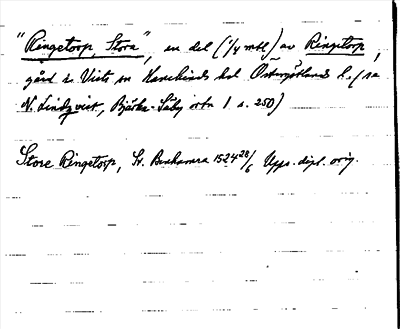 "Ringetorp, Stora", en del (1/4 mtl) av Ringetorp,
gård i Vists sn Hanekinds hd Östergötlands l. (se
N. Lindqvist, Bjärka-Säby ortn 1 s. 250)
Store Ringetorp, St. 1524 28/6 Upps. dipl. orig.